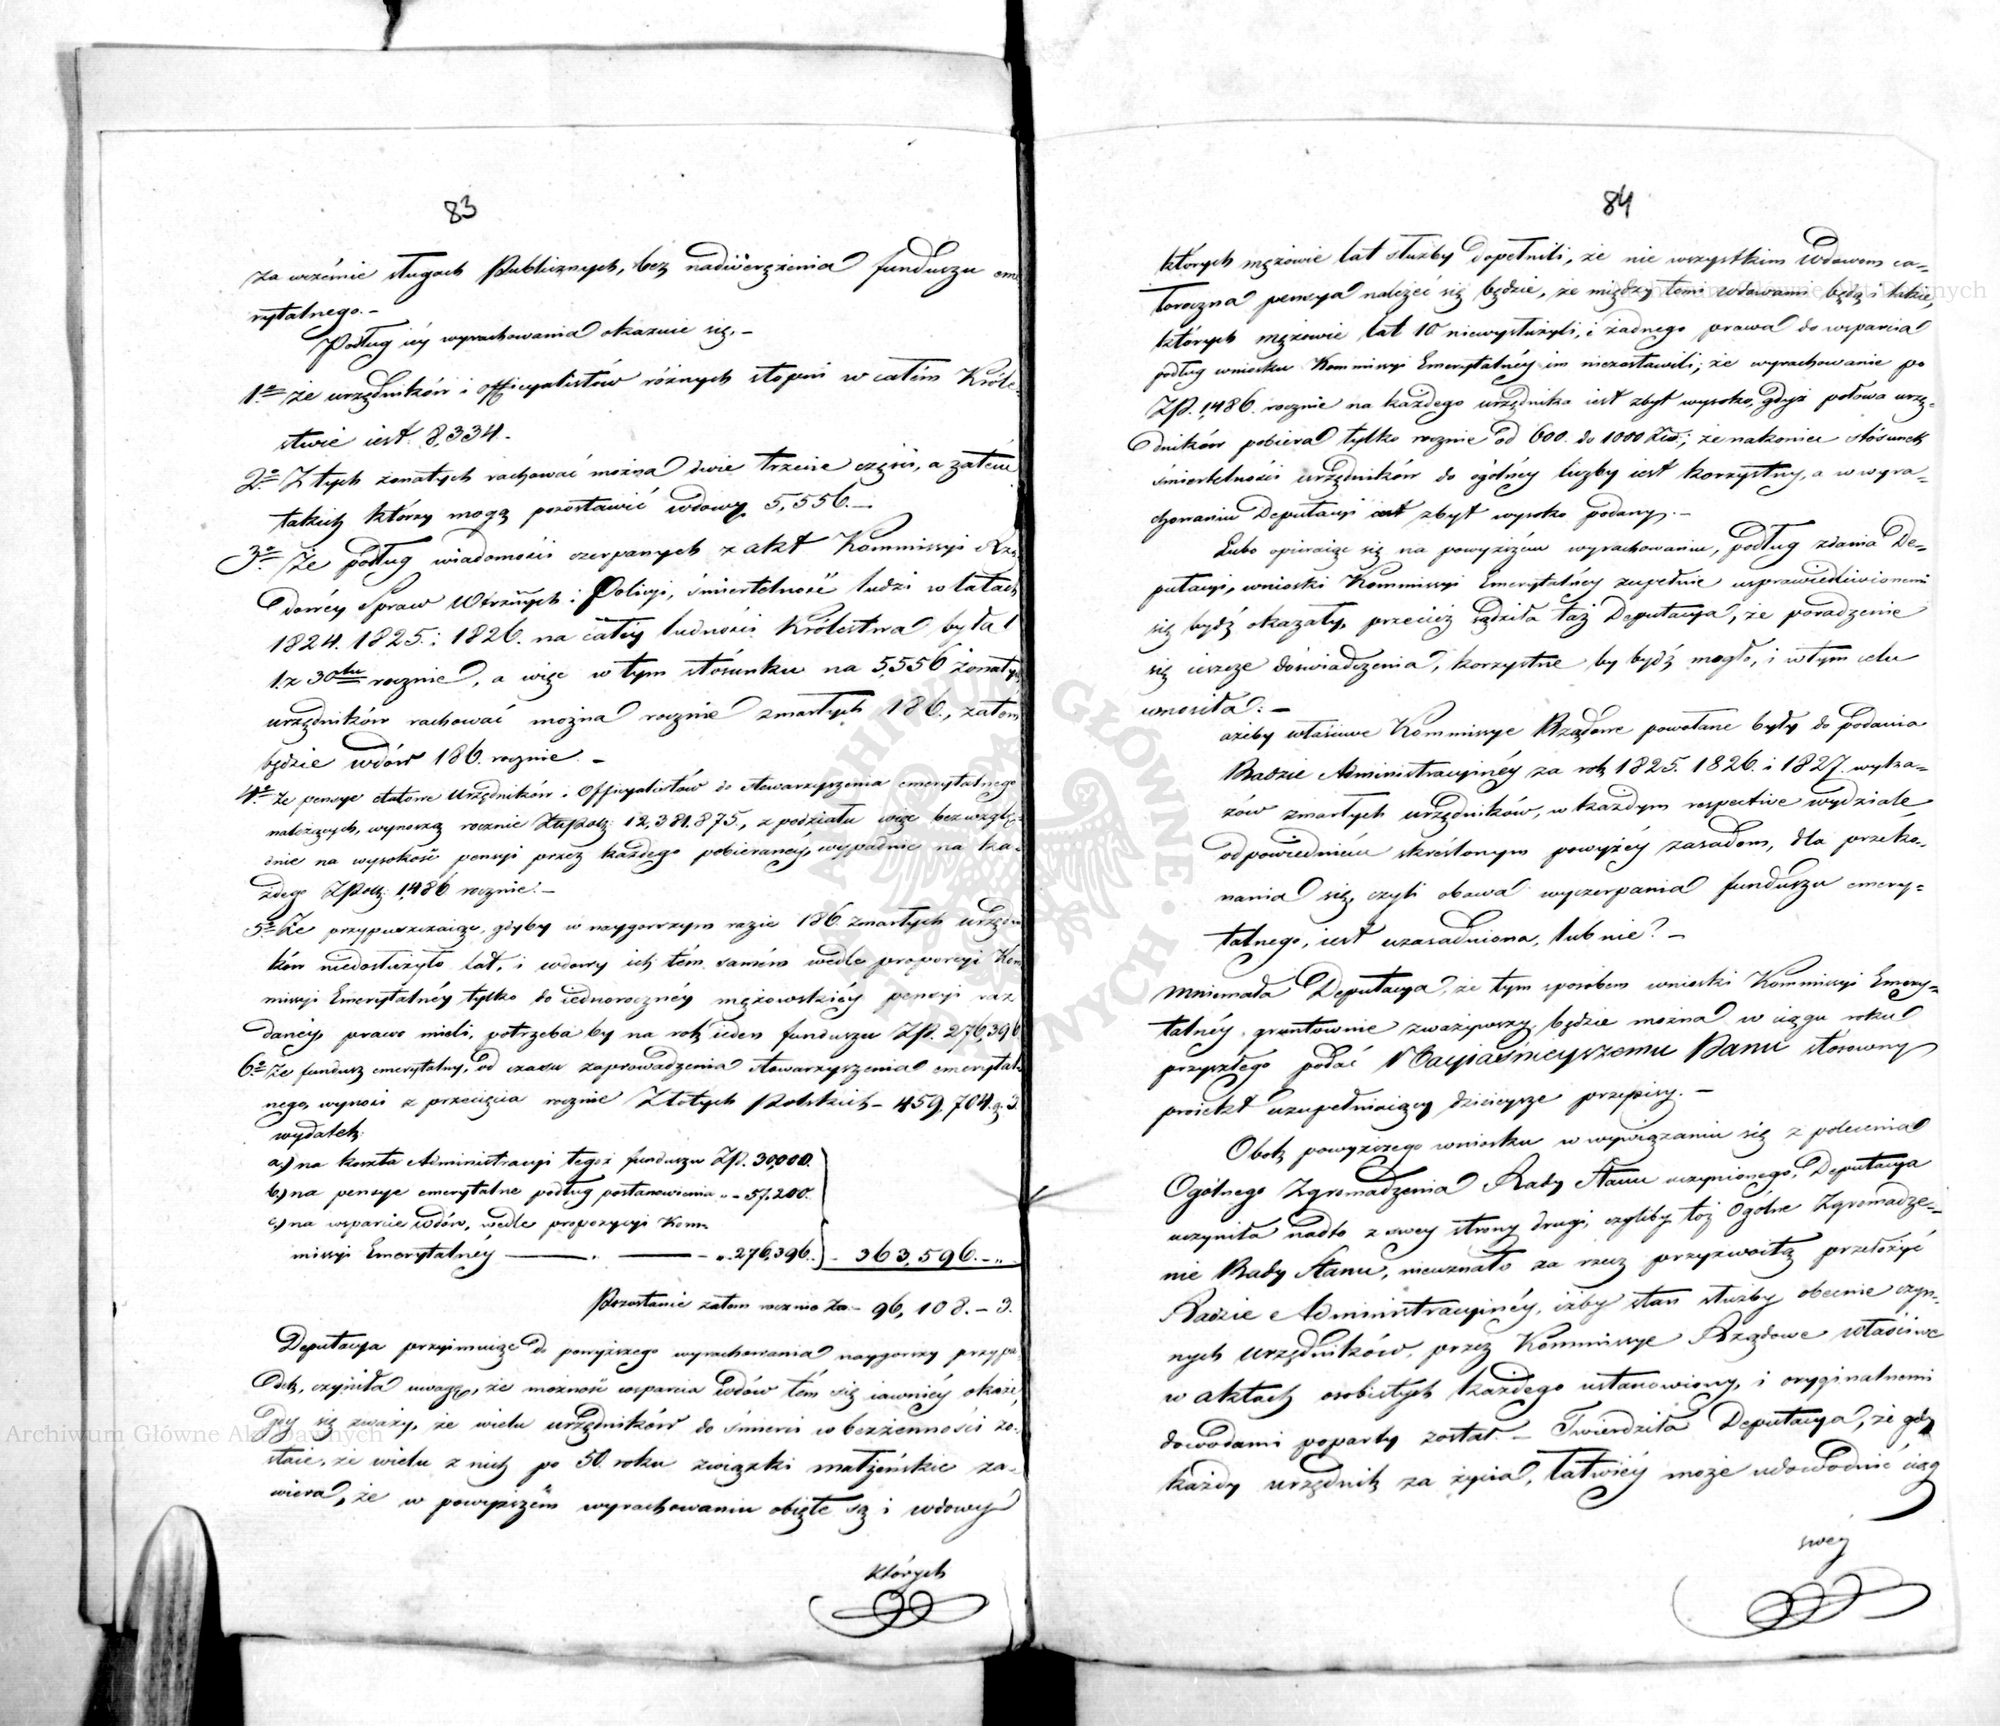 83
za wrzemie sługach Publicznych, bez nadwerężenia funduszu eme
rytalnego.-
Podług iéy wyrachowania okazuie się.-
1.o że urzędników i officyalistów różnych stopni w całém Króle-
stwie iest. 8,334.-
2.o Z tych żonatych rachować można dwie trzecie części, a zatém
takich którzy mogą pozostawić wdowy 5,556.-
3.o Że podług wiadomości czerpanych z akt Kommissyi Rzą-
dowéy Spraw Wewnznych i Policyi, śmiertelność ludzi w latach
1824. 1825. i 1826. na całéy ludności Królestwa była
1. z 30stu rocznie, a więc w tym stósunku na 5,556 żonatych
urzędników rachować można rocznie zmarłych 186., zatém
będzie wdów 186. rocznie. -
4.o że pensye etatowe Urzędników i Officyalistów do stowarzyszenia emerytalnego
należących, wynoszą rocznie Złp. 12,381.875., z podziału więc bezwzglę-
dnie na wysokość pensyi przez każdego pobieranéy, wypadnie na ka-
żdego ZPols: 1,486 rocznie.-
5.o Że przypuszczaiąc, gdyby w naygorszym razie 186. zmarłych urzędni
ków niedosłużyło lat, i wdowy ich tém samém wedle propozycyi Kom
missyi Emerytalnéy tylko do iednorocznéy mężowskiéy pensyi raz
danéy, prawo mieli, potrzeba by na rok ieden funduszu Zp. 276,396
6.o Że fundusz emerytalny, od czasu zaprowadzenia stowarzyszenia emerytal-
nego, wynosi z przecięcia rocznie Złotych Polskich - 459,704. g. 3.
wydatek:
a.) na koszta Administracyi tegoż funduszu Zp. 30,000.
b.) na pensye emerytalne podług postanowienia „ - 57,200.
c.) na wsparcie wdów, wedle propozycyi Kom-
missyi Emerytalnéy - „ 276,396. - 363,596. - „
Pozostanie zatem rocznie Zp. - 96,108. - 3.
Deputacya przyimuiąc do powyższego wyrachowania naygorszy przypa-
dek, czyniła uwagę, że możność wsparcia wdów tém się iawniéy okaże,
gdy się zważy, że wielu urzędników do śmierci w bezżenności zo-
staie, że wielu z nich po 50. roku związki małżeńskie za-
wiera, że w powyższém wyrachowaniu obięte są i wdowy
których
84
których mężowie lat służby dopełnili, że nie wszystkim Wdowom ca-
łoroczna pensya należeć się będzie, że między temi wdowami będą i takie,
których mężowie lat 10 niewysłużyli, i żadnego prawa do wsparcia
podług wniosku Kommissyi Emerytalnéy im niezostawili; że wyrachowanie po
Zp. 1,486. rocznie na każdego urzędnika iest zbyt wysoko, gdyż połowa urzę-
dników pobiera tylko rocznie od 600. do 1000 Złp; że nakoniec stósunek
śmiertelności urzędników do ogólnéy liczby iest korzystny, a w wyra-
chowaniu Deputacyi iest zbyt wysoko podany. -
Lubo opieraiąc się na powyższém wyrachowaniu, podług zdania De-
putacyi, wnioski Kommissyi Emerytalnéy zupełnie usprawiedliwionemi
się bydź okazały, przecież sądziła taż Deputacya, że poradzenie
się ieszcze doświadczenia, korzystne by bydź mogło, i w tym celu
wnosiła: -
ażeby właściwe Kommissye Rządowe powołane były do podania
Radzie Administracyinéy za rok 1825. 1826. i 1827. wyka-
zów zmarłych urzędników, w każdym respective wydziale
odpowiedniéy skreślonym powyżéy zasadom, dla przeko-
nania się, czyli obawa wyczerpania funduszu emery-
talnego, iest uzasadniona, lub nie? -
Mniemała Deputacya, że tym sposobem wnioski Kommissyi Emery-
talnéy gruntownie zważywszy będzie można w ciągu roku
przyszłego podać Nayiaśnieyszemu Panu stosowny
proiekt uzupełniaiący dzisieysze przepisy. -
Obok powyższego wniosku w wywiązaniu się z polecenia
Ogólnego Zgromadzenia Rady Stanu uczynionego, Deputacya
uczyniła nadto z swey strony drugi, czyliby toż Ogólne Zgromadze-
nie Rady Stanu, nieuznało za rzecz przyzwoitą przełożyć
Radzie Administracyinéy, iżby stan służby obecnie czyn-
nych urzędników, przez Kommissye Rządowe właściwe
w aktach osobistych każdego ustanowiony, i oryginalnemi
dowodami poparty został. - Twierdziła Deputacya, że gdy
każdy urzędnik za życia, łatwiéy może udowodnić ciąg
swéy
Archiwum Główne Akt Dawnych